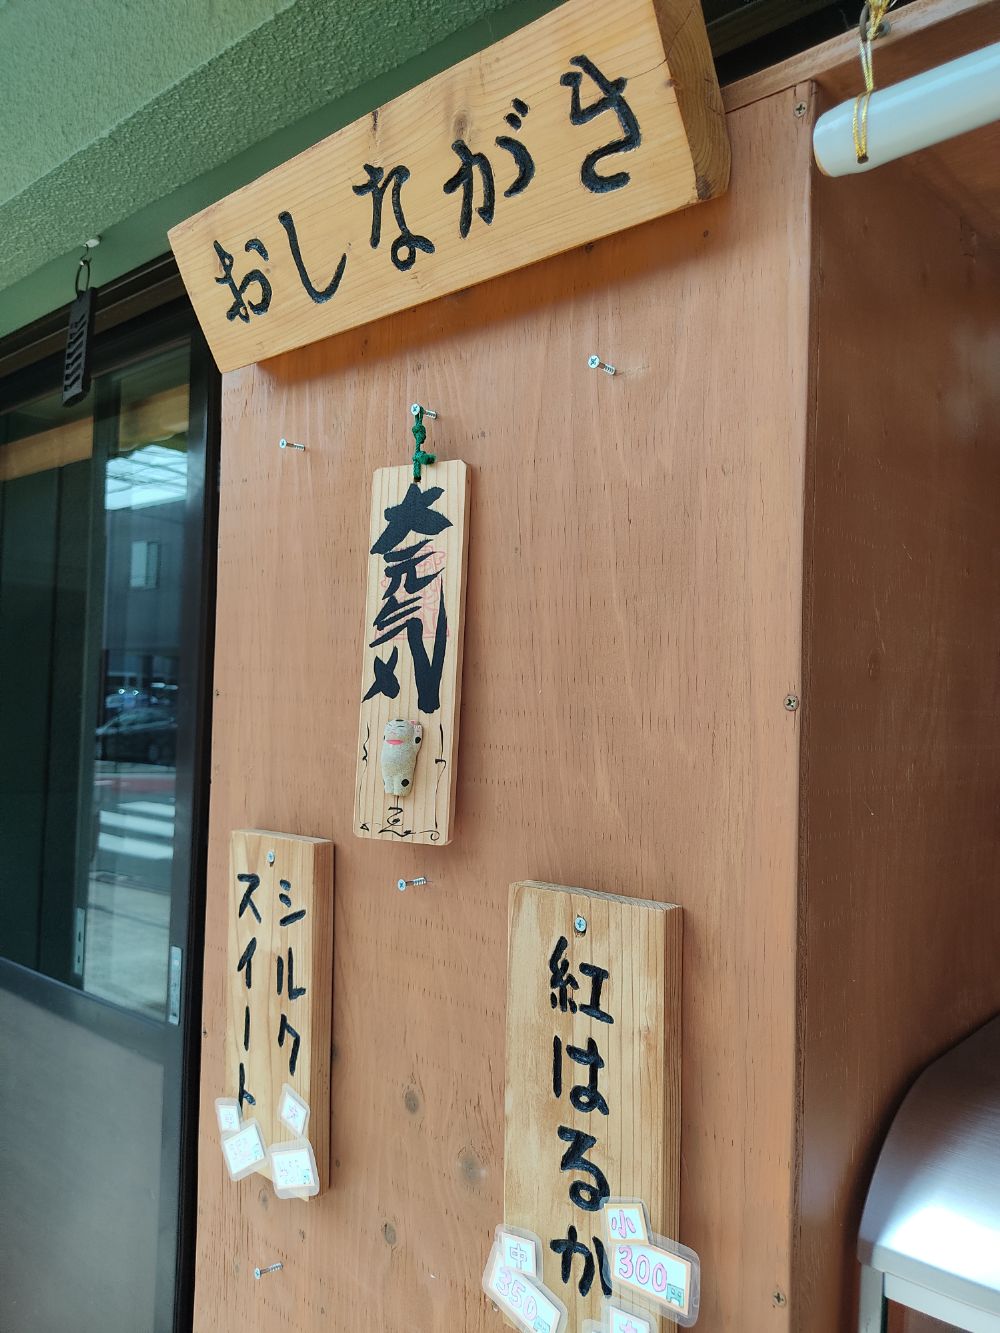 おしながき
大元気
シルク
スイート
紅はるか
小
300円
中
350円